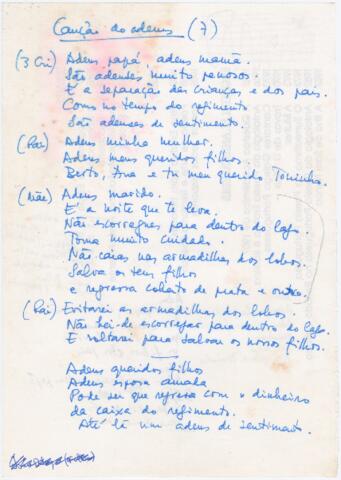 Canção do adeus (7)
(3 Cri) Adeus papá, adeus mamã.
São adeuses muito penosos.
É a separação das crianças e dos pais.
Como no tempo do regimento
São adeuses de sentimento.
(Pai) Adeus minha mulher.
Adeus meus queridos filhos.
Berto, Ana e tu meu querido Toninho.
(Mãe) Adeus marido.
É a noite que te leva.
Não escorregues para dentro do lago.
Toma muito cuidado.
Não caias nas armadilhas dos lobos.
Salva os teus filhos
e regressa coberto de prata e ouro.
(Pai) Evitarei as armadilhas dos lobos.
Não hei-de escorregar para dentro do lago.
E voltarei para salvar os nossos filhos.
Adeus queridos filhos
Adeus esposa amada
Pode ser que regresse com o dinheiro
da caixa do regimento.
Até lá um adeus de sentimento.